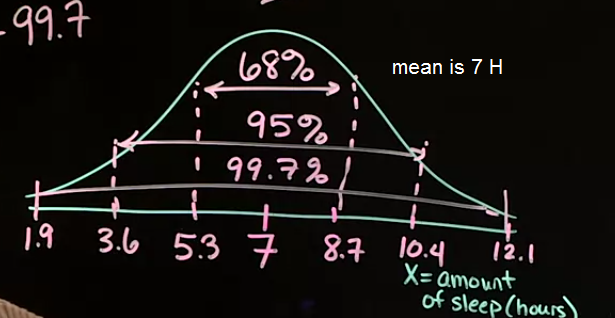 -99.7
68%
mean is 7 H
95%
99.7%
1.9 3.6 5.3 7 8.7 10.4 12.1
X= amount
of sleep (hours)